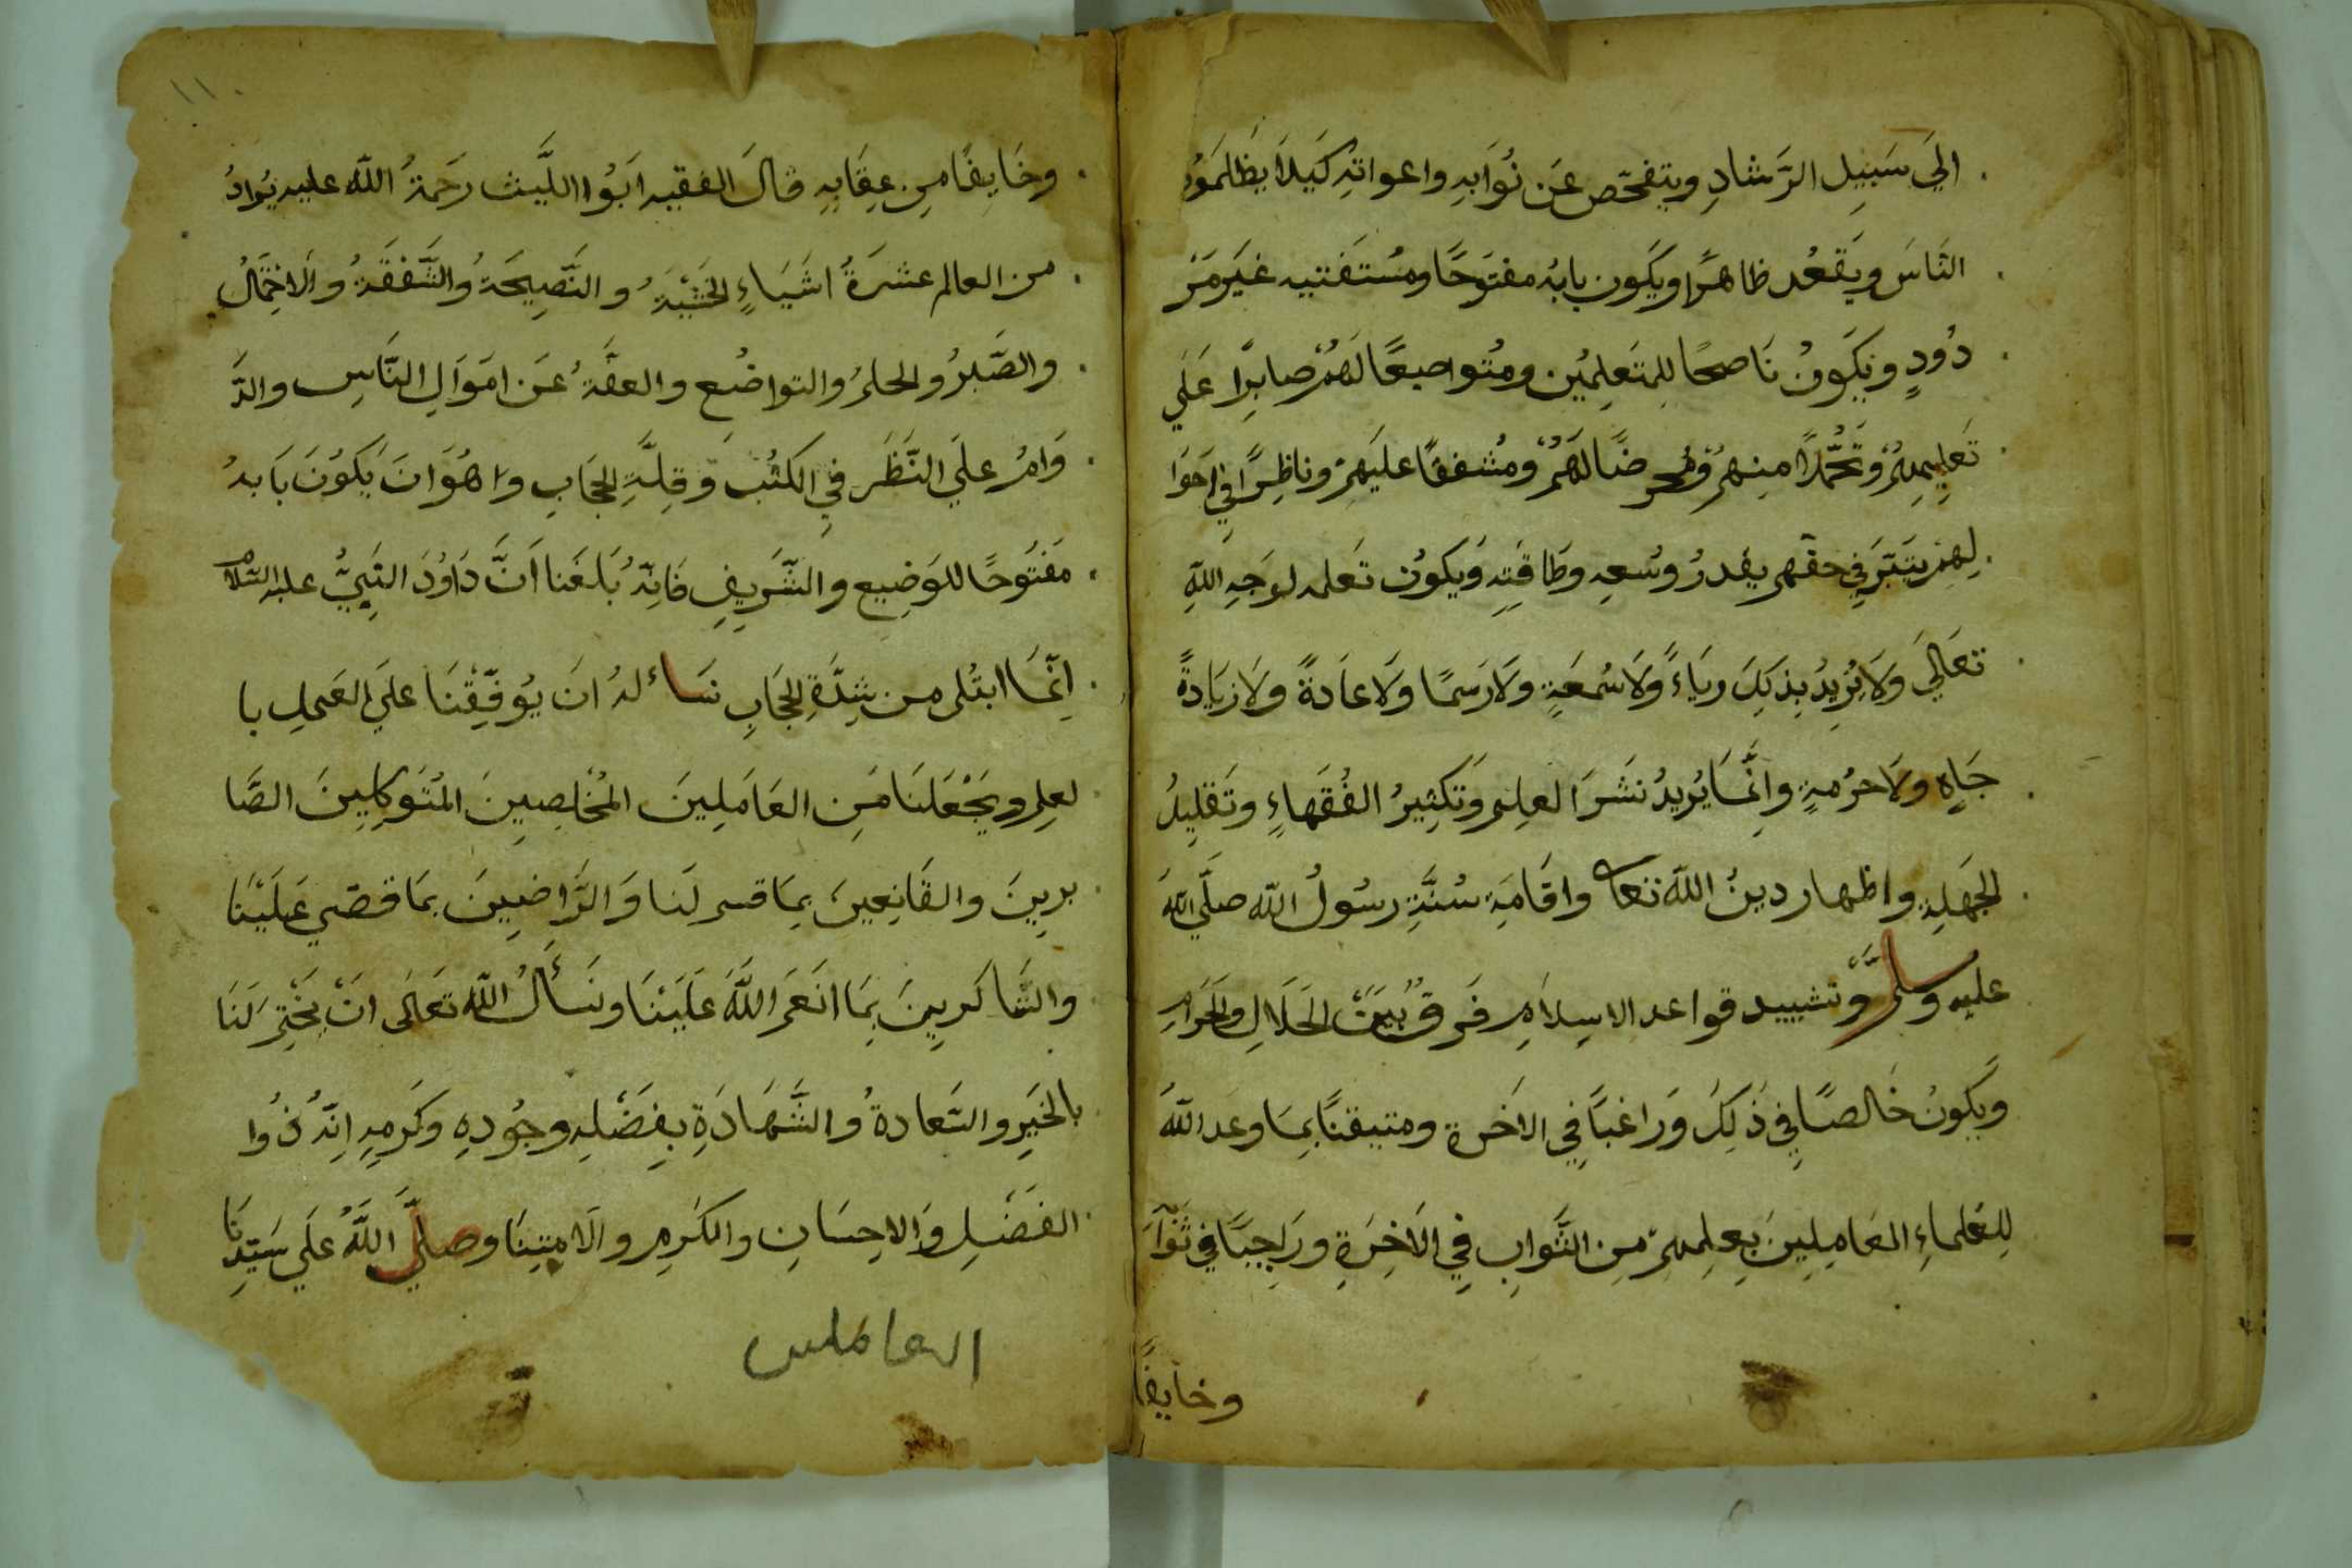 الَي سَبيِل الرَّشادِ ويتفحّص عَن نُوَابهِ واعوانهِ كَيلَا يظَلمَوُن
الناسَ ويَقعُد ظاهرًا ويكَون بابهُ مفتوَحًا ومُستَفتيه غيَر مَر
دُودٍ ويَكَونُ نَاصحًا للمتَعلِميُن ومُتواضعًا لَهُمْ صابرًا عَلَي
تَعليِمهِمْ وتَحُّملًا منِهمْ ومُحرضًا لهَمُ ومُشفقًا عليَهِمْ وناظِرًا فِي احَوَا
لِهِمْ يتَبَّر في حقهم بقدرُ وسُعهِ وطَاقتِهِ ويَكوُن تَعلمه لوجَهِ اللّٰهِ
تعَالَي ولَا يُرِيدُ بِذلَكِ ريَاءً ولَا سُمعَةٍ ولَا رَسمًا ولَا عَادةً ولَا زيَادةً
جَاهٍ ولَا حرُمةٍ وانِمَّا يُريدُ نَشرَ العلِم وتَكثِيرُ الفُقَهاءِ وتَقليِلُ
الجَهَلةِ واظهار دينُ اللّٰه تعا واقَامَة سُنَّةِ رسُولُ اللّٰه صلَّي اللّٰهُ
عليه وسلَّم وتشييد قواعد الاسِلاَمِ فَرقُ بيَن الحَلَالِ والحَرامِ
ويَكونُ خَالصًا فِي ذَلِكَ ورَاغبًا فِي الاَخرة ومتيقنًا بمِا وعَد اللّٰهُ
للِعُلماءِ العَامِليِنَ بعِلِمهِمْ مِنِ الثَّوابِ فِي الاَخرَةِ ورَاجيًا فِي ثَوَآ
وخايفًا
١١٠
وخَايفًا مِن عِقَابِهِ قالَ الفقيه ابَوُا اللَّيث رحَمةُ اللّٰه عليه يُرادُ
من العالم عشرَةُ اشَيَاءٍ الخشَيَةُ و النَّصِيحَةُ والشَّفقَةُ والَاحَتمَالُ
والصَّبرُ والحلمُ والتواضُع والعفَّةُ عَن امَوَالِ النَّاسِ والدَّ
وَامُ علَي النَّظَر فيِ الكتُبْ وَقِلَّةِ الحجَابِ وا هُوَانَ يَكُونَ بَابهُ
مفَتوَحًا للوَضيِع والشَّريِفِ فَانِهُ بَلغَنا اَنَّ دَاوُدَ النَبِيُّ عليه السّلام
اِنمَّا ابتُلي من شِدَّةِ الحجَابِ نسَاٴلهُ انَ يُوفّقِنَا علَي العَملِ با
لعِلِم ويَجْعَلنَا مَنِ العَامَلِينَ المُخلصِيِنَ المُتَوكلِينَ الصَّا
برِينَ والقَانِعينَ بمِا قسم لَنا وَالرَّاضييِنَ بمَا قضَي عَلَيْنا
والشَّاكريِنَ بمَا انعَمَ اللَّهُ عَليَنْا ونَسأَلُ اللّٰه تعَالَى انَ يَختِمَ لَنَا
بالخَيرِ والسَّعادةُ والشَّهَادَةِ بفِضَلِهِ وجُودِهِ وكَرمِهِ انِهُ ذُوا
الفَضَلِ وَالاحِسَانِ والكَرمِ والَامتِنا وصلَّي اللَّهُ علَي سَيّدِنَا
العاملىں